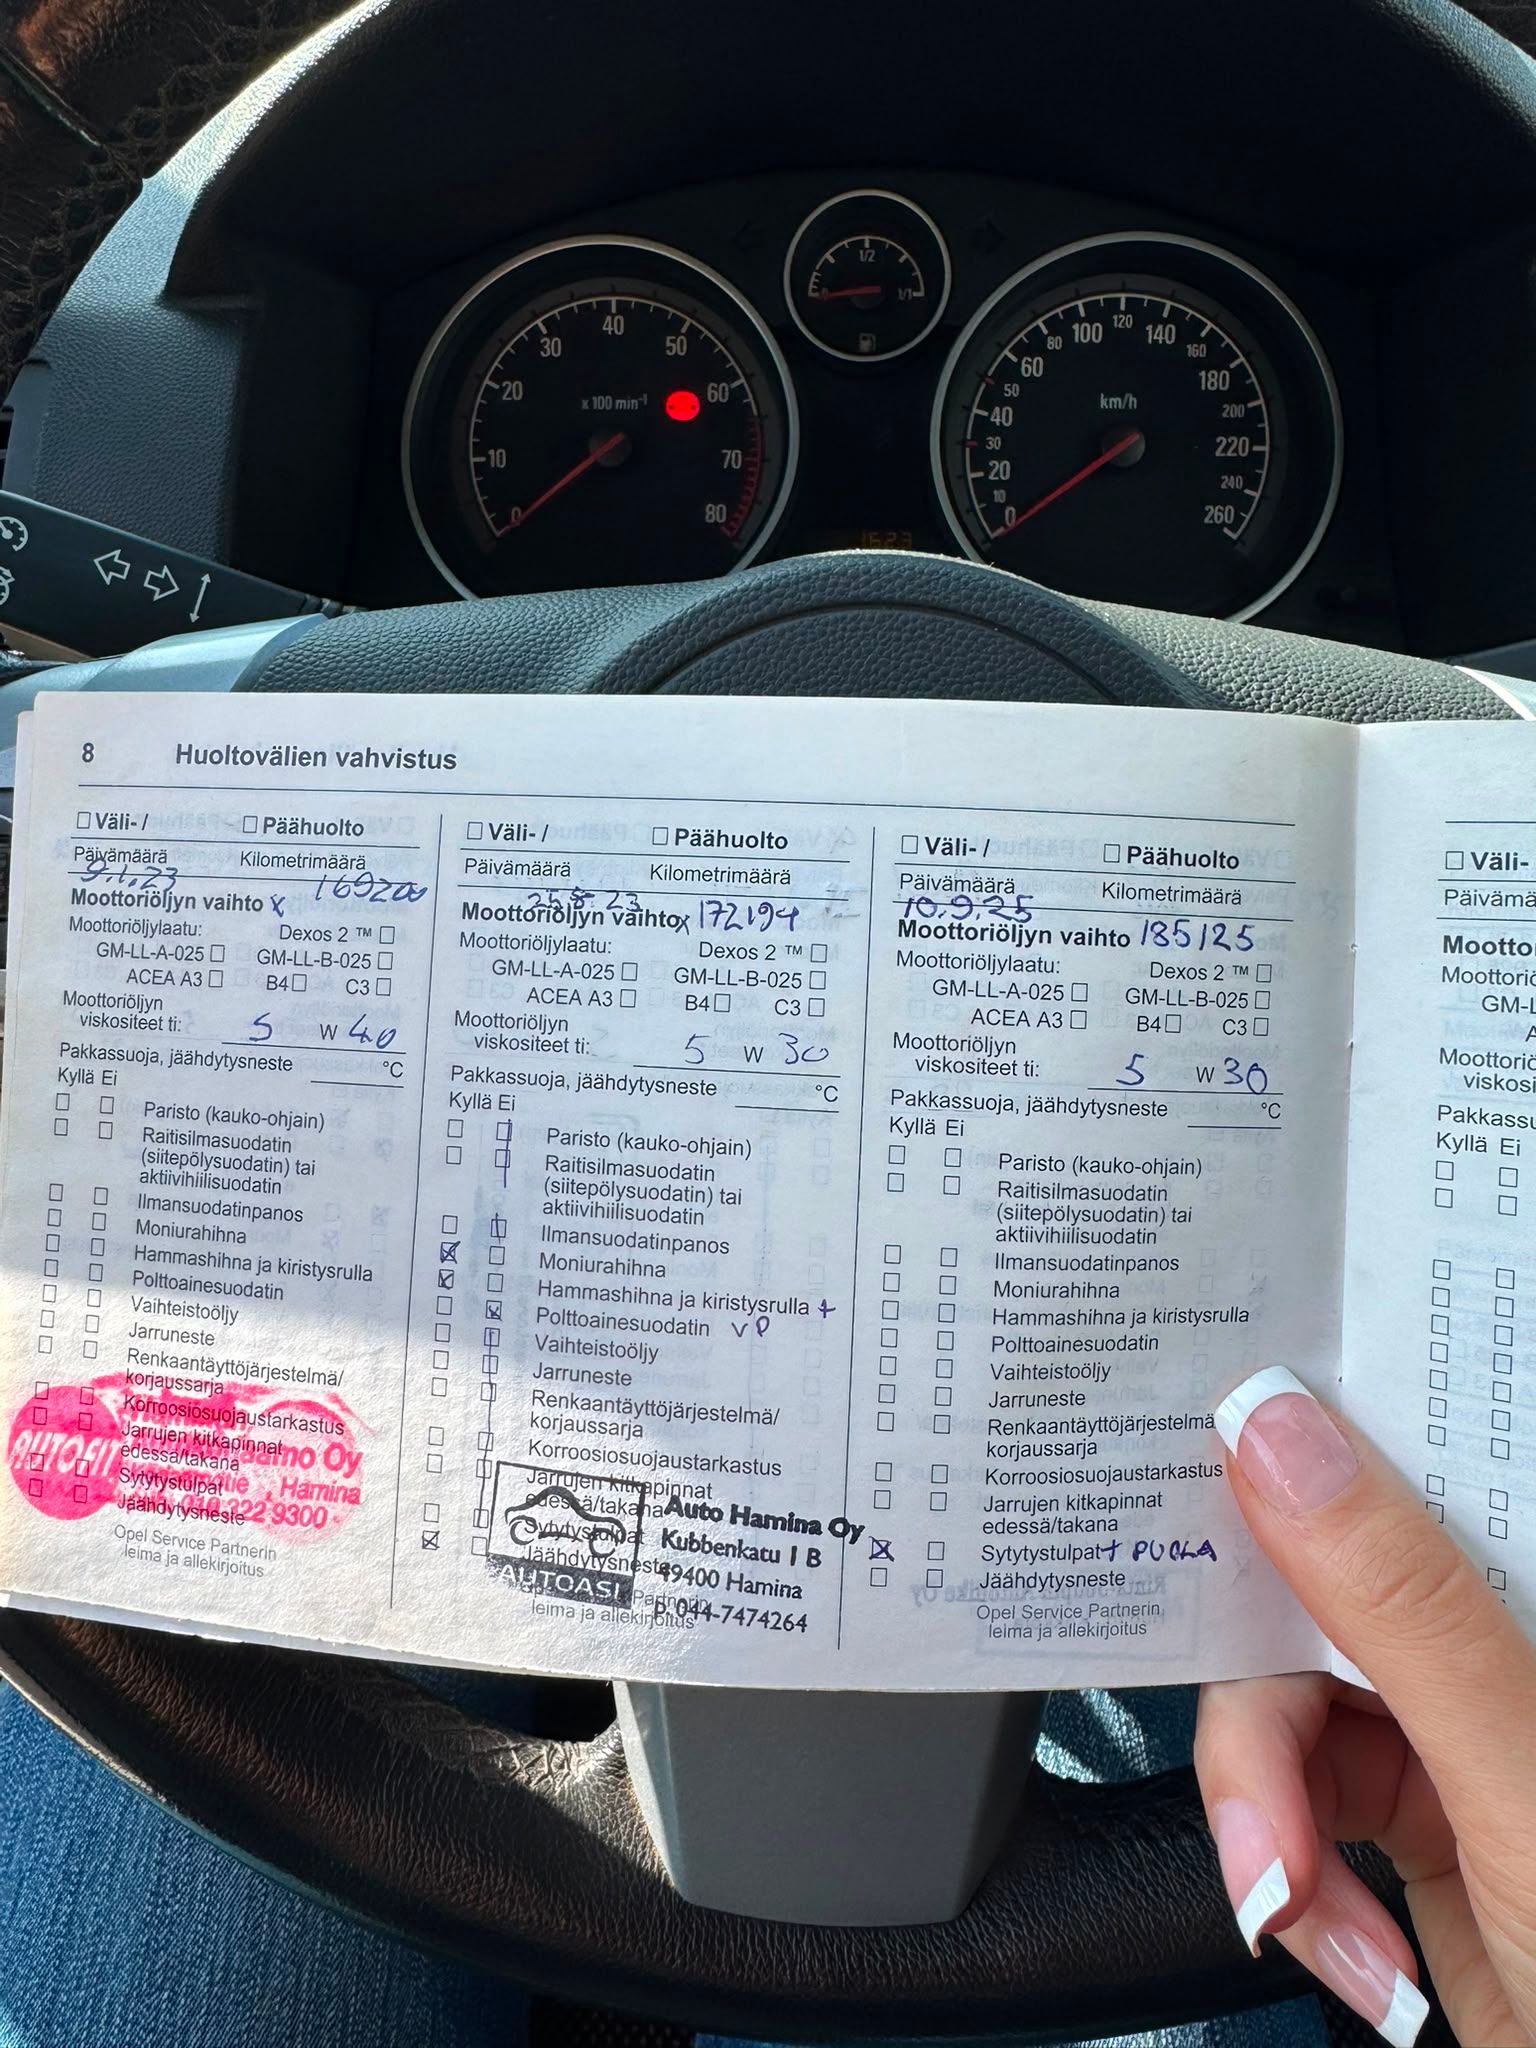 1/2
0 1/1
40
30 50
20 x 100 min⁻¹ 60
10 70
0 80
100 120 140
80 160
60 180
50 km/h 200
40
30 220
20 240
10
0 260
1623
8 Huoltovälien vahvistus
Väli- / Päähuolto
Päivämäärä Kilometrimäärä
9.1.23 169200
Moottoriöljyn vaihto x
Moottoriöljylaatu: Dexos 2 ™
GM-LL-A-025 GM-LL-B-025
ACEA A3 B4 C3
Moottoriöljyn
viskositeet ti: 5 W 40
Pakkassuoja, jäähdytysneste °C
Kyllä Ei
Paristo (kauko-ohjain)
Raitisilmasuodatin
(siitepölysuodatin) tai
aktiivihiilisuodatin
Ilmansuodatinpanos
Moniurahihna
Hammashihna ja kiristysrulla
Polttoainesuodatin
Vaihteistoöljy
Jarruneste
Renkaantäyttöjärjestelmä/
korjaussarja
Korroosiosuojaustarkastus
Jarrujen kitkapinnat
edessä/takana
Sytytystulpat
Jäähdytysneste
AUTOFIT
Oy
, Hamina
010 322 9300
Opel Service Partnerin
leima ja allekirjoitus
Väli- / Päähuolto
Päivämäärä Kilometrimäärä
25.8.23
Moottoriöljyn vaihto x 172194
Moottoriöljylaatu: Dexos 2 ™
GM-LL-A-025 GM-LL-B-025
ACEA A3 B4 C3
Moottoriöljyn
viskositeet ti: 5 W 30
Pakkassuoja, jäähdytysneste °C
Kyllä Ei
Paristo (kauko-ohjain)
Raitisilmasuodatin
(siitepölysuodatin) tai
aktiivihiilisuodatin
Ilmansuodatinpanos
Moniurahihna
Hammashihna ja kiristysrulla +
Polttoainesuodatin VP
Vaihteistoöljy
Jarruneste
Renkaantäyttöjärjestelmä/
korjaussarja
Korroosiosuojaustarkastus
Jarrujen kitkapinnat
edessä/takana
Sytytystulpat
Jäähdytysneste
AUTOASI
Auto Hamina Oy
Kubbenkatu 1 B
49400 Hamina
P. 044-7474264
Partnerin
leima ja allekirjoitus
Väli- / Päähuolto
Päivämäärä Kilometrimäärä
10.9.25
Moottoriöljyn vaihto 185125
Moottoriöljylaatu: Dexos 2 ™
GM-LL-A-025 GM-LL-B-025
ACEA A3 B4 C3
Moottoriöljyn
viskositeet ti: 5 W 30
Pakkassuoja, jäähdytysneste °C
Kyllä Ei
Paristo (kauko-ohjain)
Raitisilmasuodatin
(siitepölysuodatin) tai
aktiivihiilisuodatin
Ilmansuodatinpanos
Moniurahihna
Hammashihna ja kiristysrulla
Polttoainesuodatin
Vaihteistoöljy
Jarruneste
Renkaantäyttöjärjestelmä
korjaussarja
Korroosiosuojaustarkastus
Jarrujen kitkapinnat
edessä/takana
Sytytystulpat + PUOLA
Jäähdytysneste
Opel Service Partnerin
leima ja allekirjoitus
Väli-
Kyllä Ei